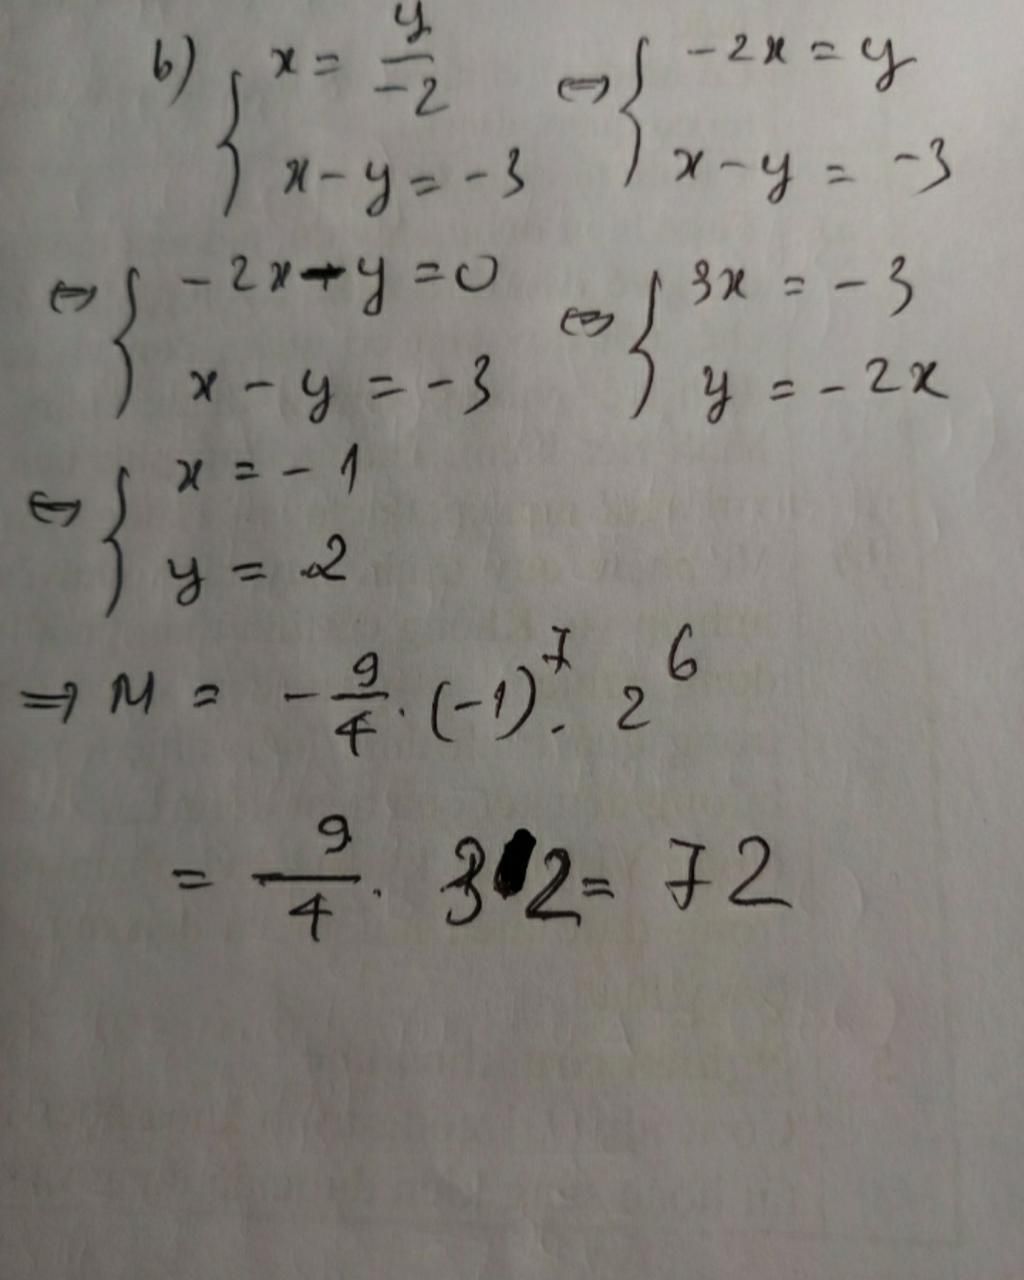 b) { x = y/-2 ⇔ { -2x = y
x - y = -3 x - y = -3
⇔ { -2x - y = 0 ⇔ { 3x = -3
x - y = -3 y = -2x
⇔ { x = -1
y = 2
⇒ M = -9/4 . (-1)^7 . 2^6
= 9/4 . 32 = 72